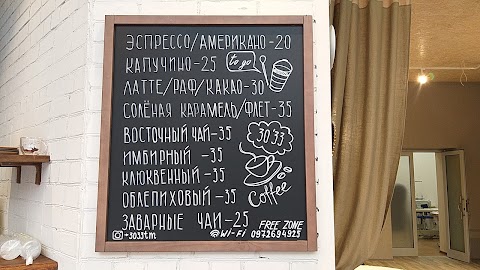 ЭСПРЕССО/АМЕРИКАНО-20
КАПУЧИНО-25 to go
ЛАТТЕ/РАФ/КАКАО-30
СОЛЁНАЯ КАРАМЕЛЬ/ФЛЕТ-35
ВОСТОЧНЫЙ ЧАЙ-35
3033
ИМБИРНЫЙ -35
КЛЮКВЕННЫЙ-35
ОБЛЕПИХОВЫЙ-35
Coffee
ЗАВАРНЫЕ ЧАИ-25
FREE ZONE
-3033tm
@Wi-Fi 0972694925